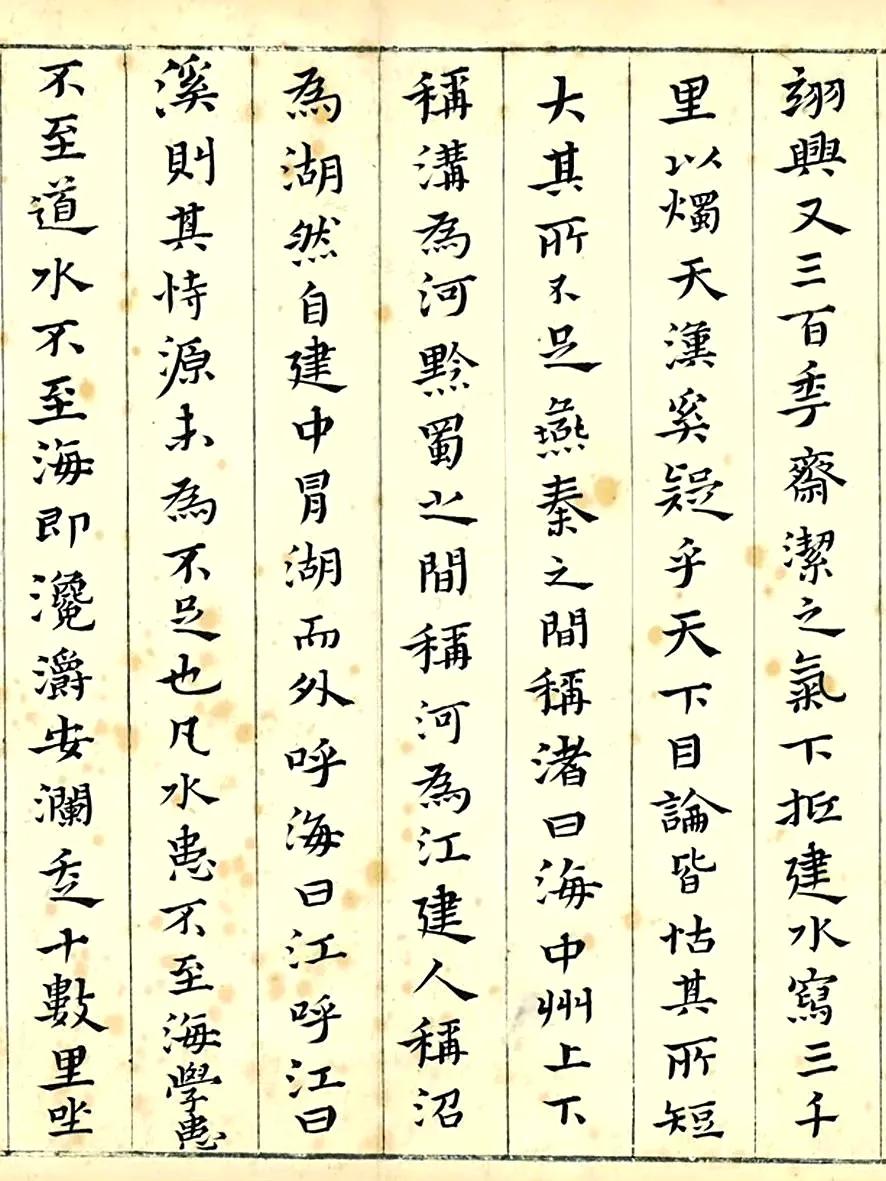 翊興又三百季齋潔之氣下抵建水寫三千
里以燭天漢奚疑乎天下目論皆怙其所短
大其所不足燕秦之間稱渚曰海中州上下
稱溝為河黔蜀之間稱河為江建人稱沼
為湖然自建中冐湖而外呼海曰江呼江曰
溪則其恃源未為不足也凡水患不至海學患
不至道水不至海即瀺灂安瀾走十數里坐